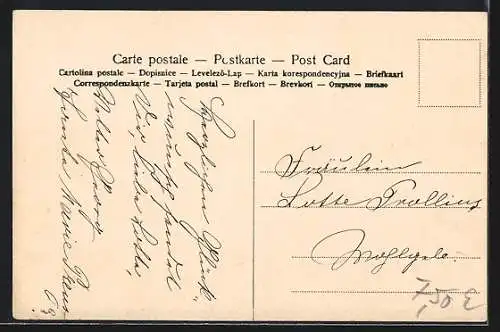 Carte postale — Postkarte — Post Card
Cartolina postale — Dopisnice — Levelező-Lap — Karta korespondencyjna — Briefkaart
Correspondenzkarte — Tarjeta postal — Brefkort — Brevkort — Открытое письмо
Herzlichen Glück-
wunsch sendet
Dir liebe Lotte
Fräulein
Lotte Trollius
Wohlgeb.
7,50 €